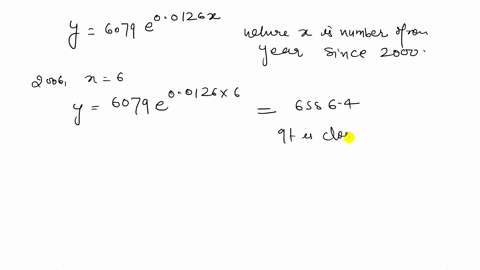 y = 6079 e^0.0126x where x is number of
year since 2000.
2006, x = 6
y = 6079 e^0.0126×6 = 6556.4
It is clo